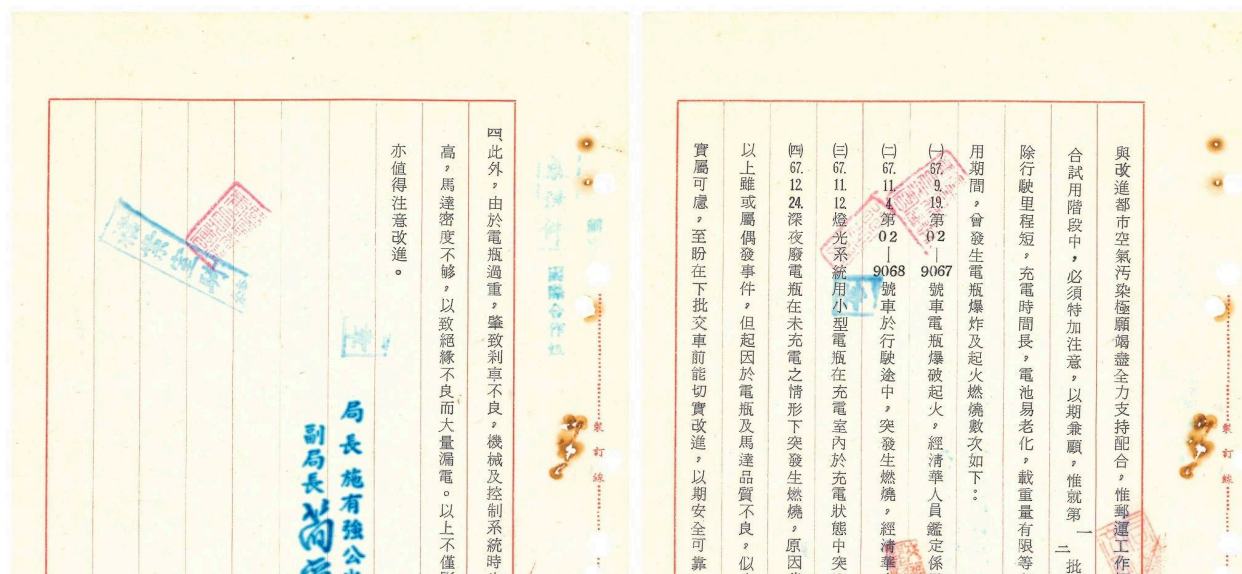 與改進都市空氣汚染極願竭盡全力支持配合，惟郵運工作
合試用階段中，必須特加注意，以期兼顧，惟就第一二批
除行駛里程短，充電時間長，電池易老化，載重量有限等
用期間，曾發生電瓶爆炸及起火燃燒數次如下：
㈠67.9.19.第02—9067號車電瓶爆破起火，經清華人員鑑定係
㈡67.11.4.第02—9068號車於行駛途中，突發生燃燒，經清華
㈢67.11.12.燈光系統用小型電瓶在充電室內於充電狀態中突
㈣67.12.24.深夜廢電瓶在未充電之情形下突發生燃燒，原因
以上雖或屬偶發事件，但起因於電瓶及馬達品質不良，似
實屬可慮，至盼在下批交車前能切實改進，以期安全可靠
裝訂線
四、此外，由於電瓶過重，肇致刹車不良，機械及控制系統時
高，馬達密度不够，以致絕緣不良而大量漏電。以上不僅
亦值得注意改進。
局長施有強公
副局長
裝訂線